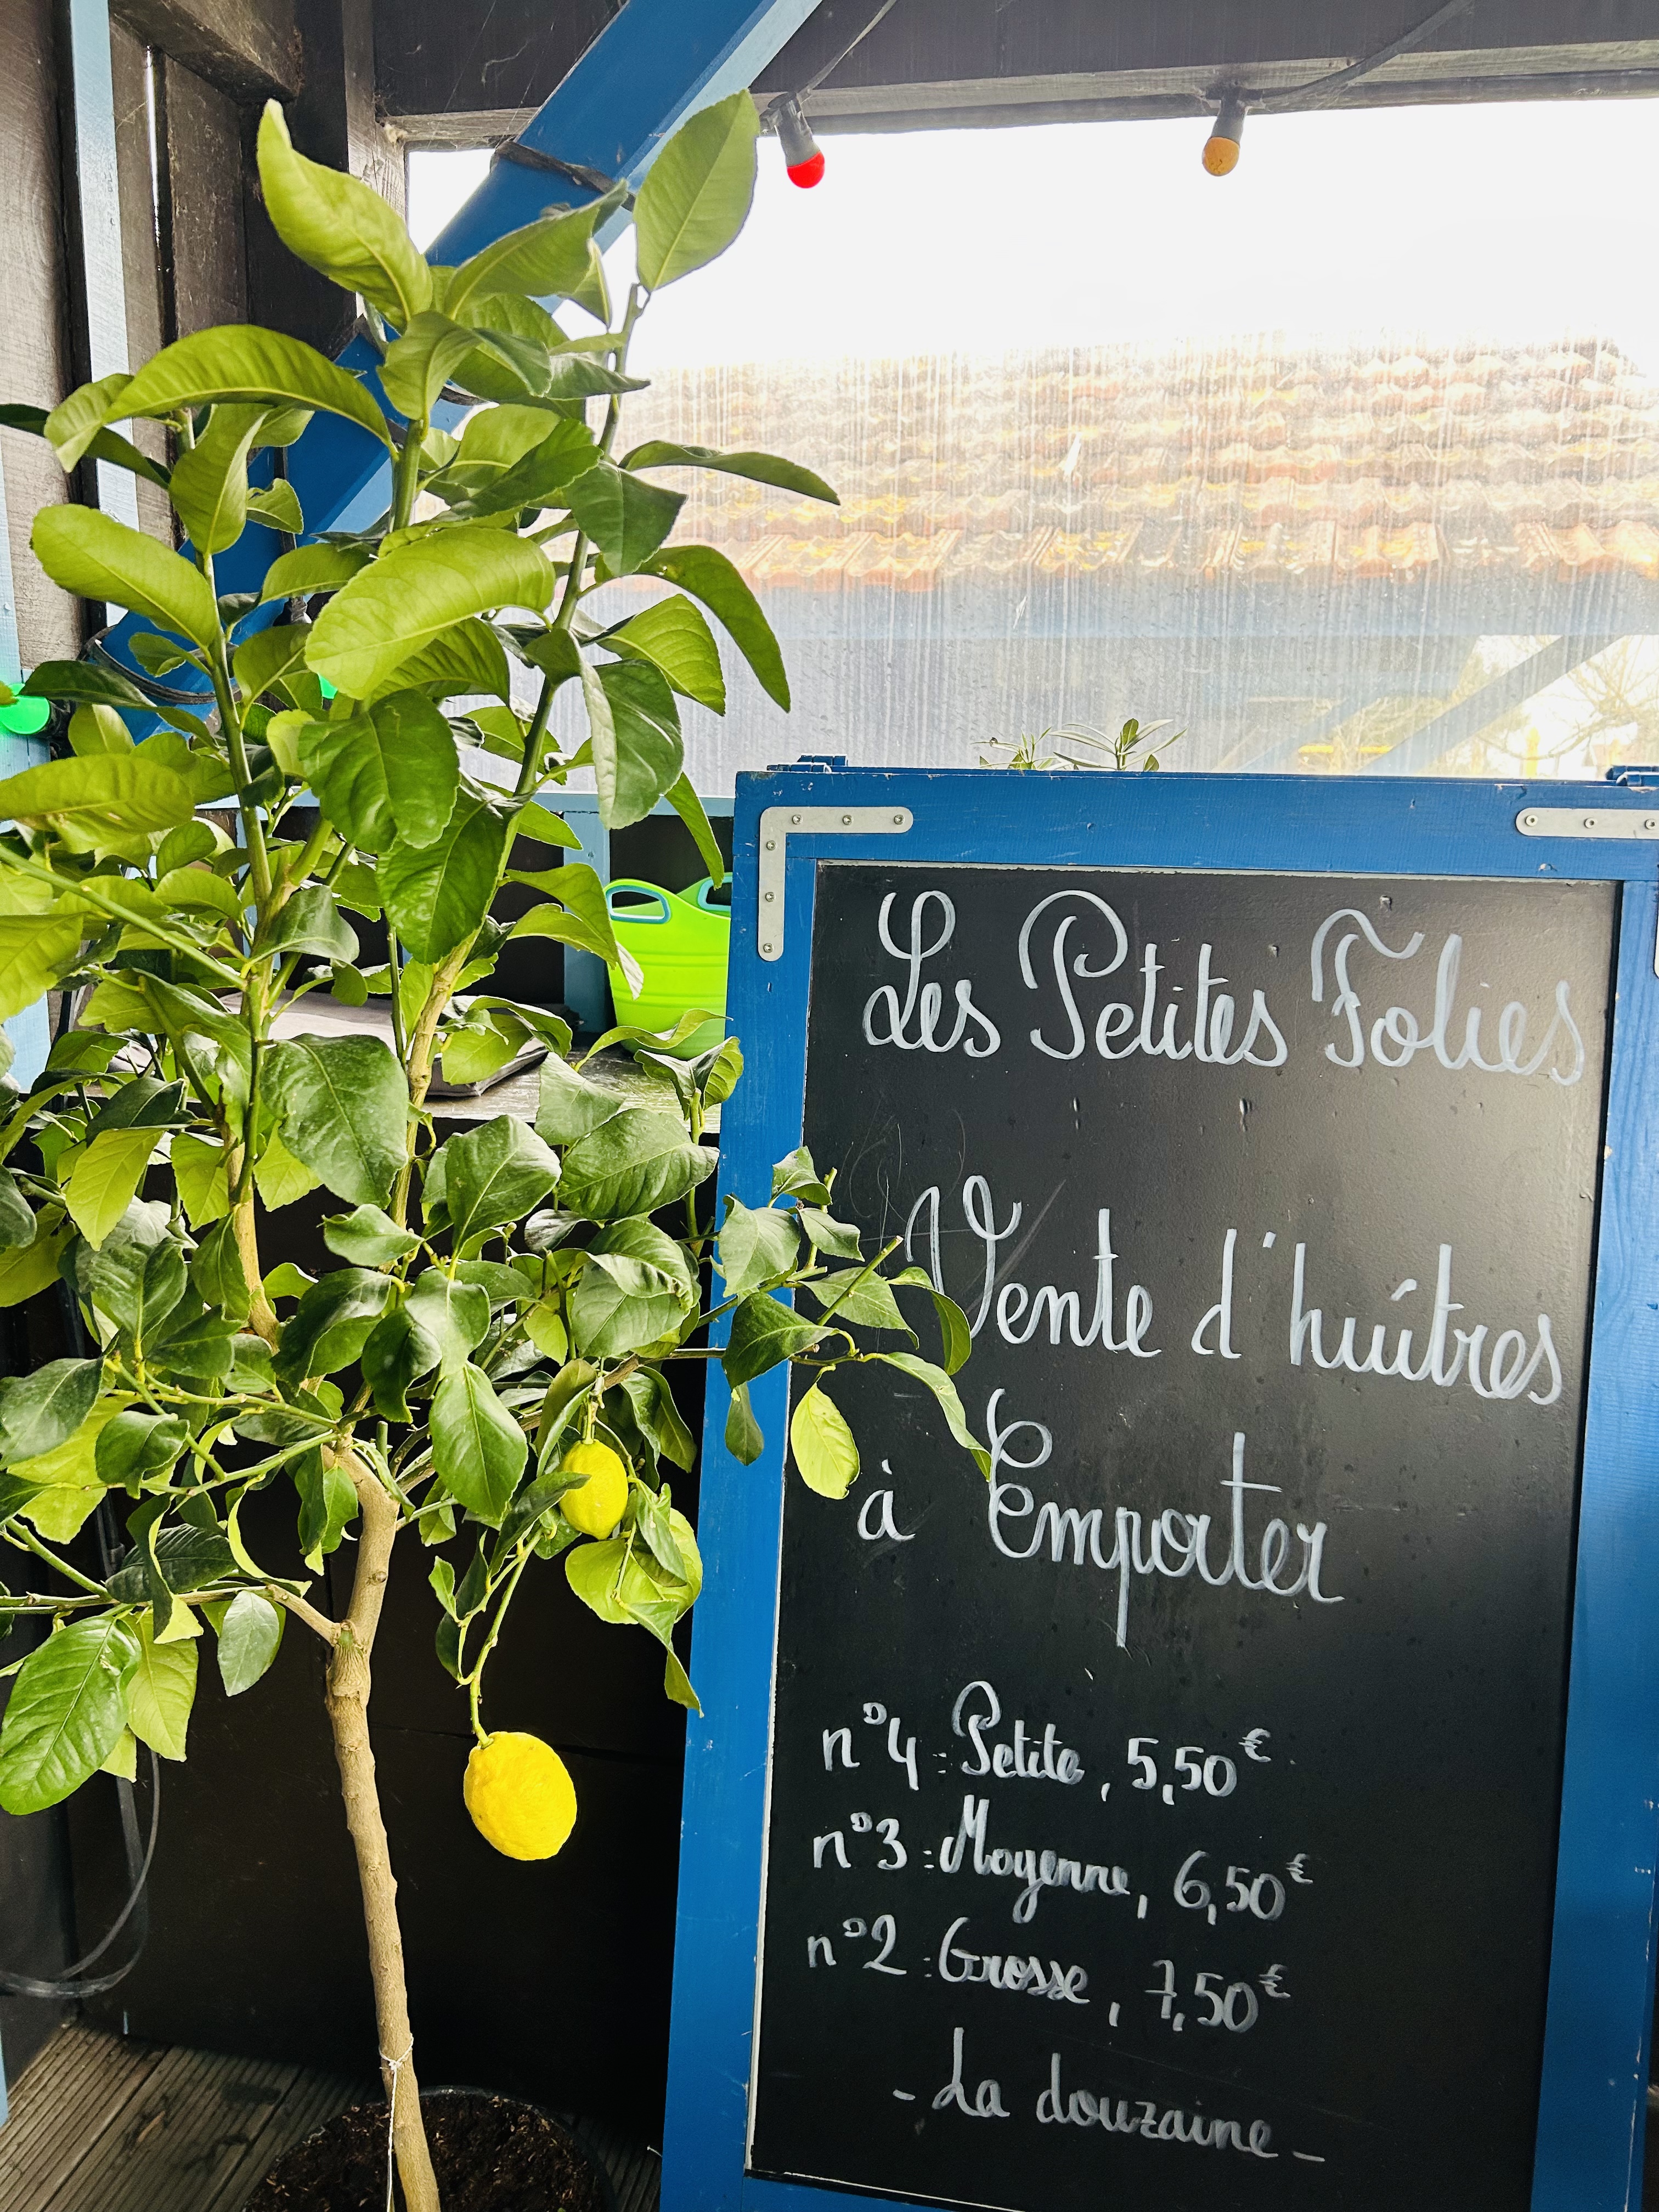 Les Petites Folies
Vente d'huîtres
à Emporter
n°4 : Petite, 5,50€
n°3 : Moyenne, 6,50€
n°2 : Grosse, 7,50€
- La douzaine -